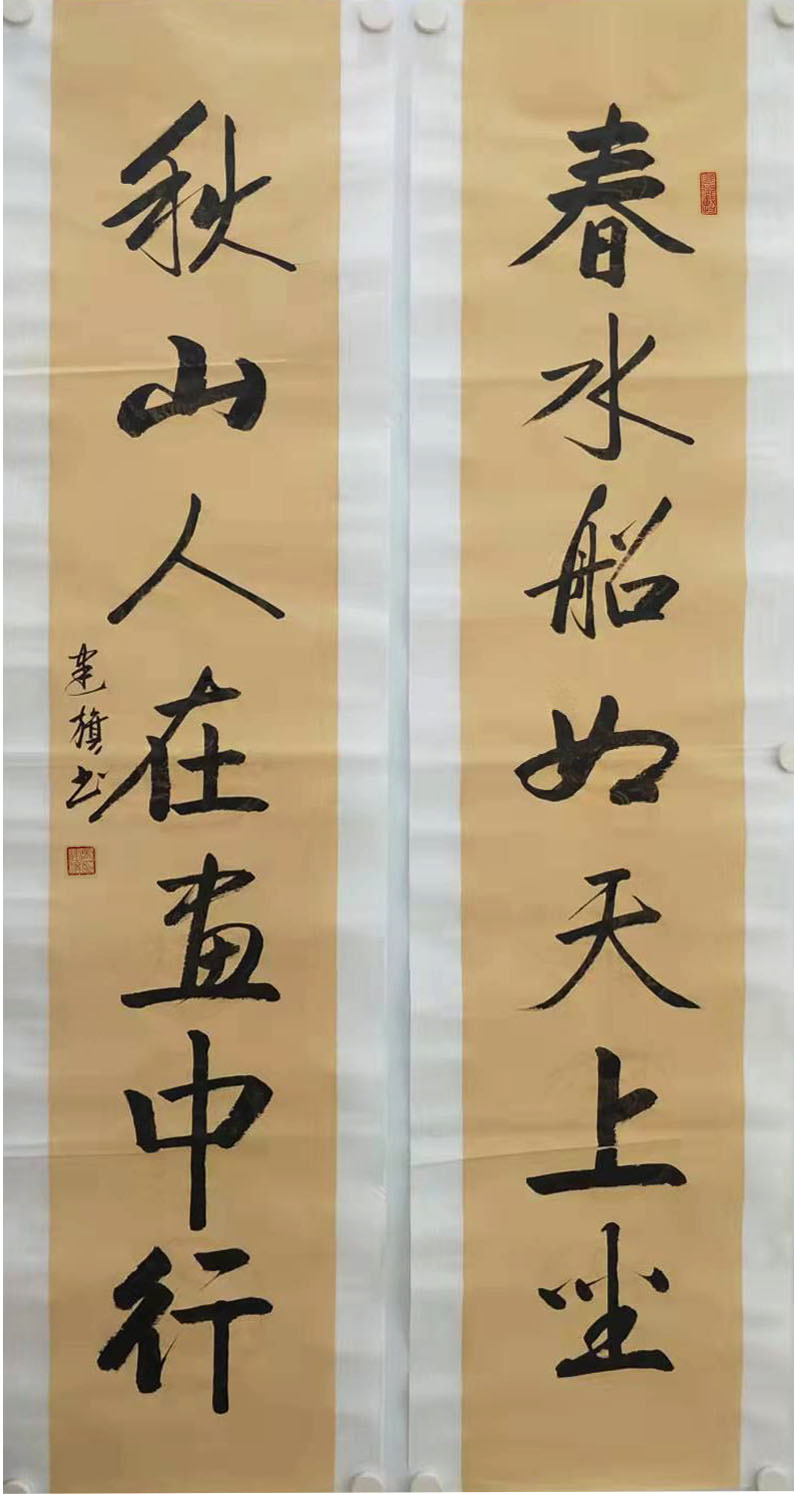 春水船如天上坐
秋山人在画中行
建旗书